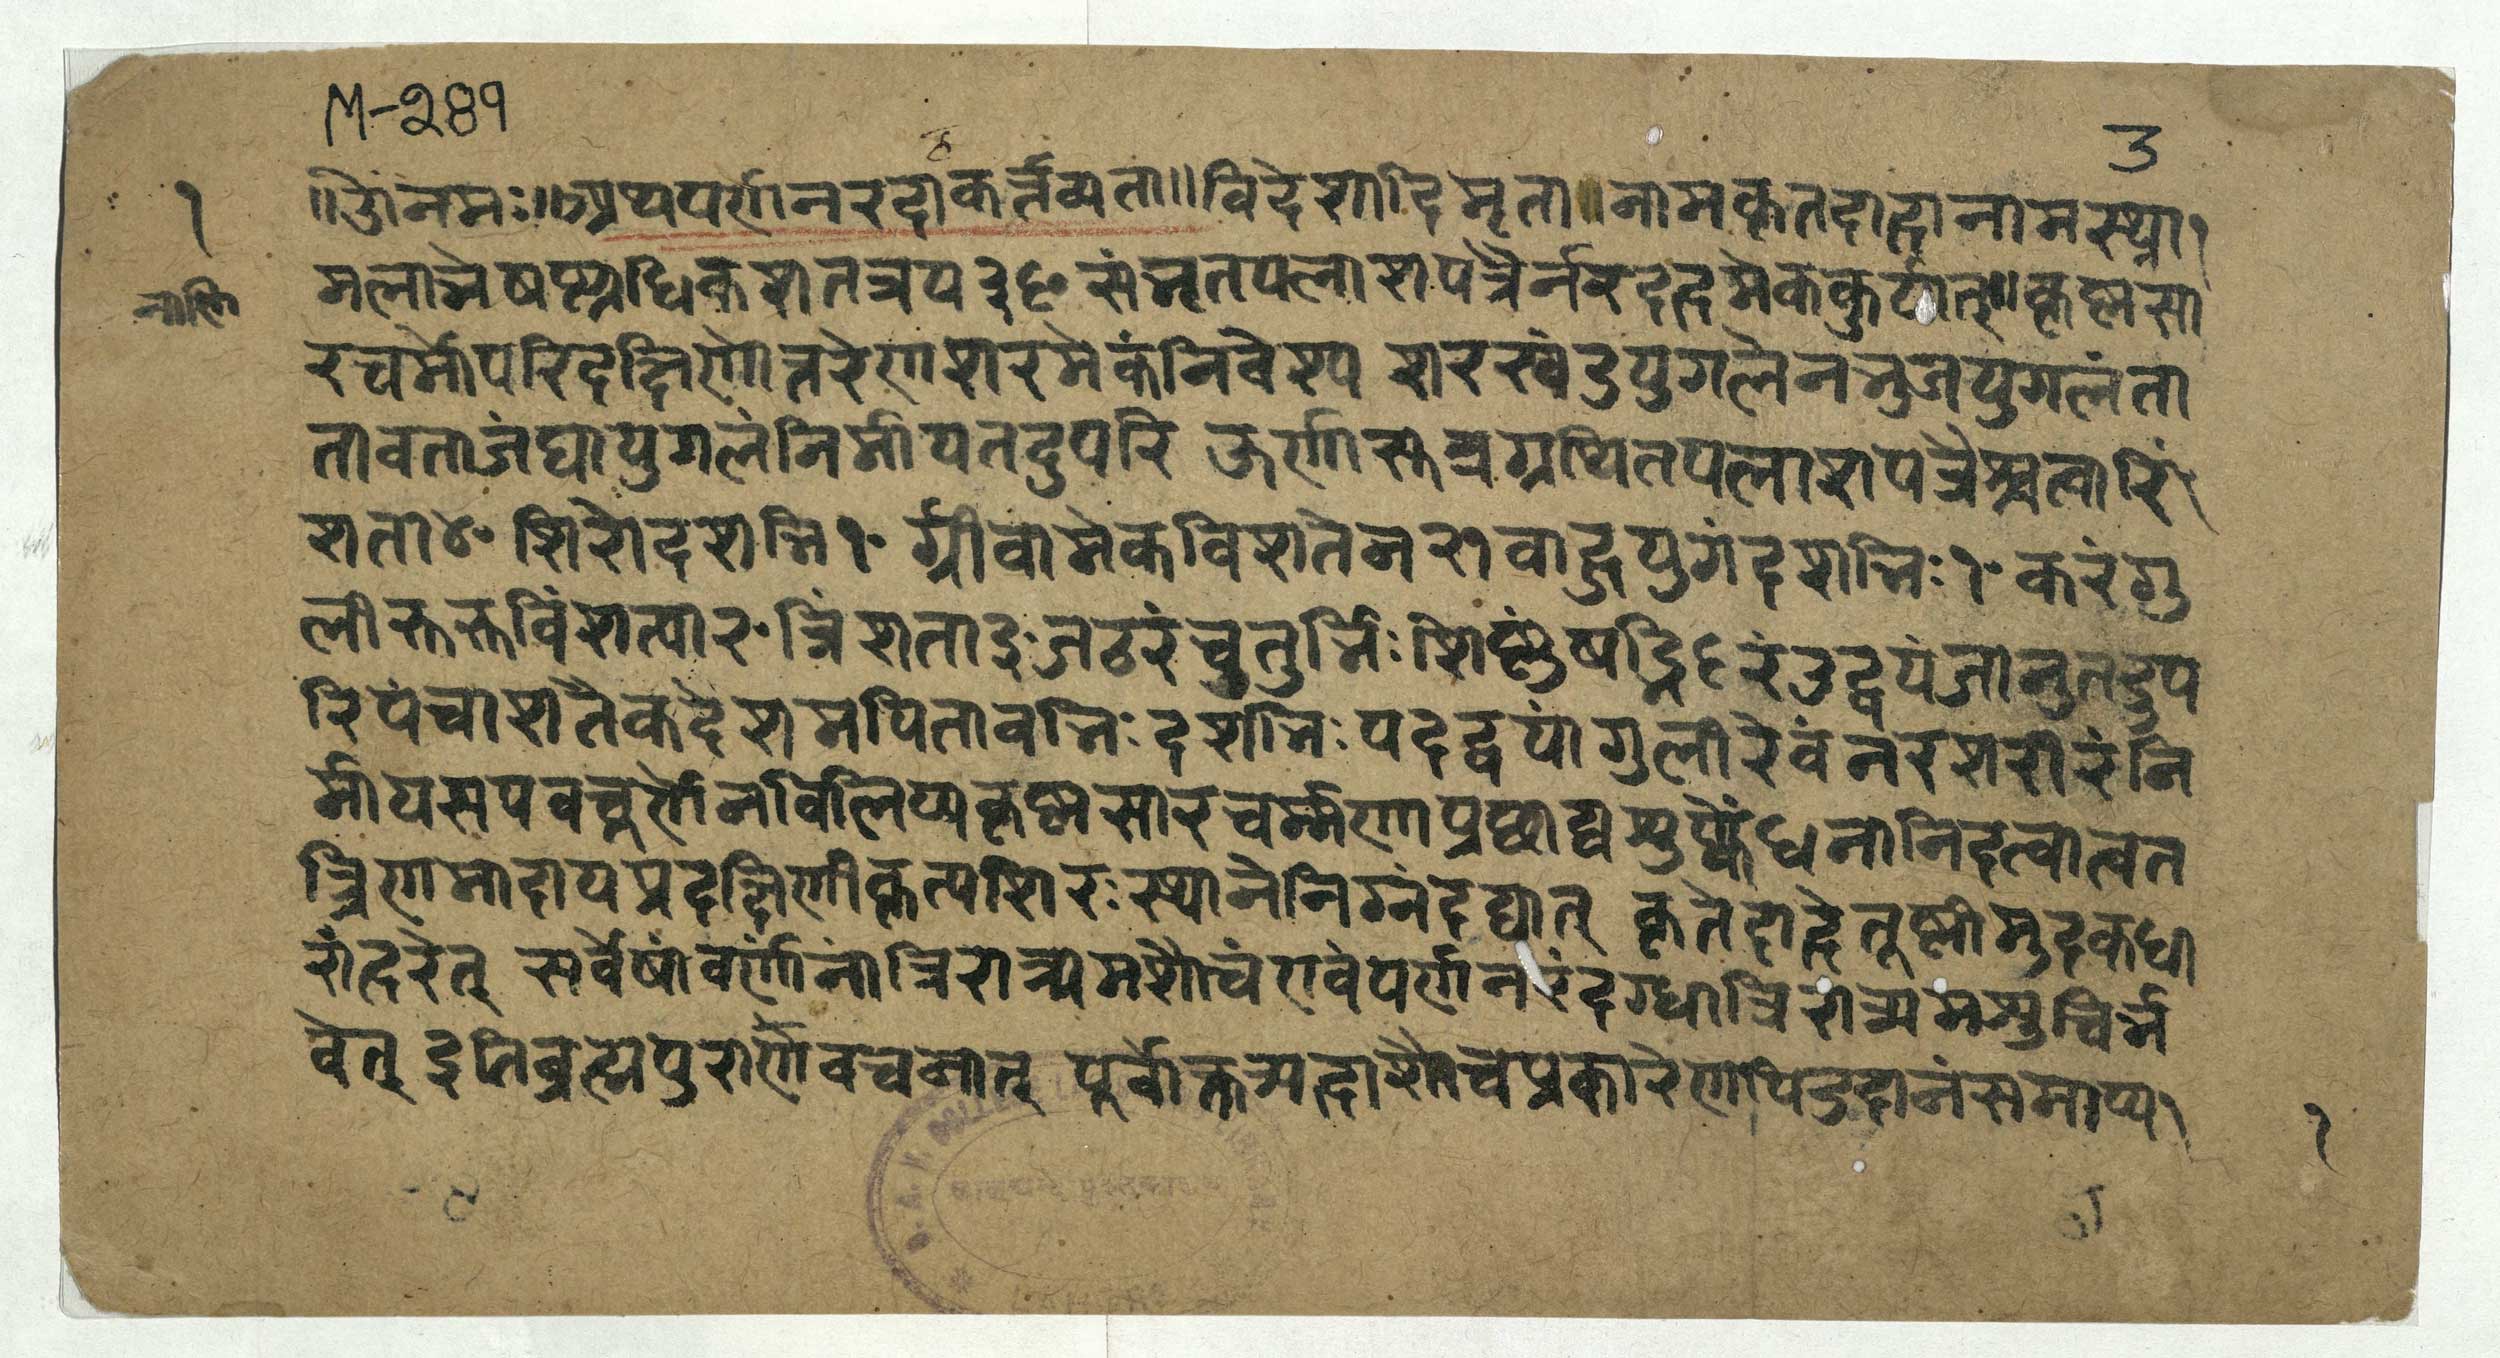 M-२८१
३
॥ओंनमः॥अथपर्णनरदाकर्त्तव्यता॥विदेशादिमृता॥नामकृतदाहानामस्थ्ना१
१
मलाभेषष्ट्यधिकशतत्रय३६०संभृतपलाशपत्रैर्नरदहमेककुर्यात्॥कृष्णसा
नाभि
रचर्मोपरिदक्षिणोत्तरेणशरमेकंनिवेश्य शरखंडयुगलेनभुजयुगलंता
तावताजंघायुगलंनिर्मायतदुपरि ऊर्णासूत्रग्रथितपलाशपत्रैश्चत्वारिं
शता४०शिरोदशभि१०ग्रीवामेकविशतेन२१वाहुयुगंदशभिः१०करंगु
लीस्तस्तविंशत्या२०त्रिंशता३०जठरंचतुर्भिः शिष्णुंषड्भि६रंउद्वयंजानुतदुप
रिपंचाशतैकदेशमपितावभिः दशभिः पदद्वयांगुलीरेवंनरशरीरंनि
र्मायसयवचूर्णेनविलिप्यकृष्णसारचर्म्मणाप्रछाद्यशुष्केंधनानिदत्वात्वत
त्त्रिणमादायप्रदक्षिणीकृत्यशिरःस्थानेनिग्नंदद्यात् कृतेदाहेतूष्णीमुदकधा
रांहरेत् सर्वेषांवर्णानांत्रिरात्र्यमशौचंएवंपर्णनरंदग्धात्रिरात्र्यमशुचिर्भ
वेत् इतिब्रह्मपुराणेवचनात् पूर्वोक्तमद्दाशौचप्रकारेणपिंडदानंसमाप्य१
१